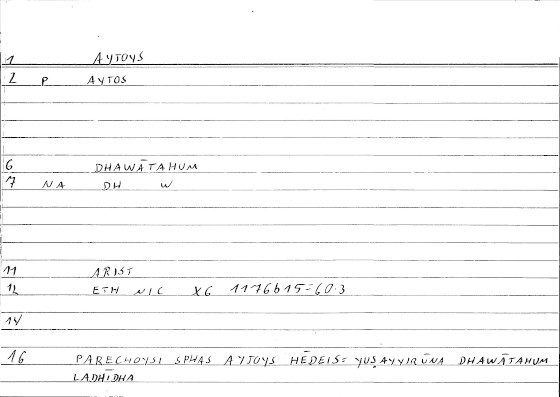 1 AYTOYS
2 P AYTOS
6 DHAWĀTAHUM
7 NA DH W
11 ARIST
12 ETH NIC X6 1176b15=60.3
14
16 PARECHOYSI SPHAS AYTOYS HĒDEIS= YUṢAYYIRŪNA DHAWĀTAHUM
LADHĪDHA